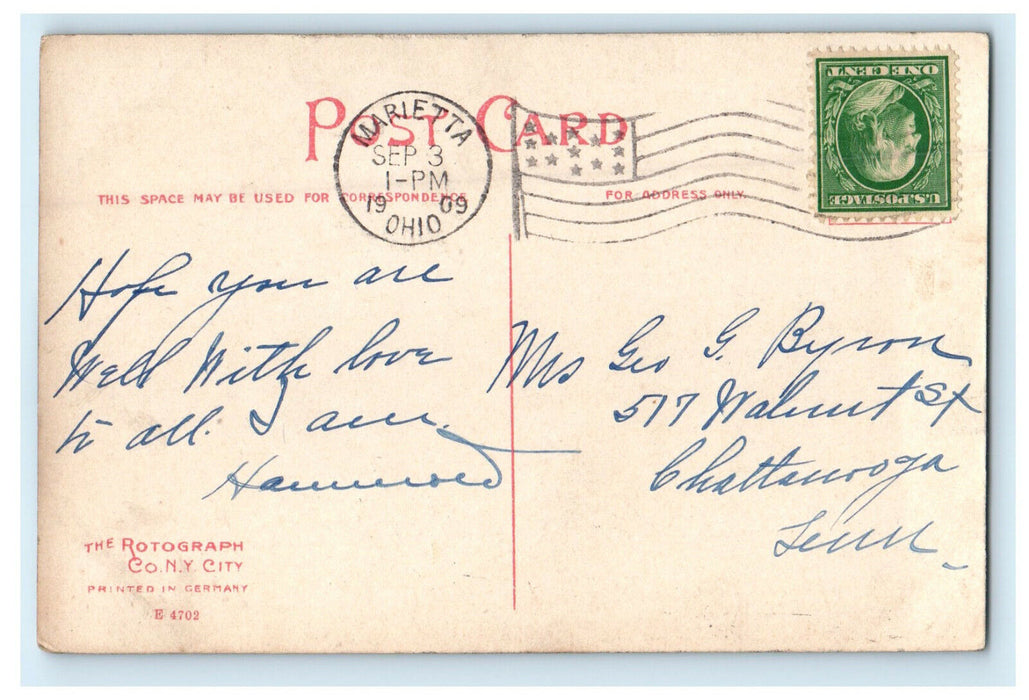 POST CARD
MARIETTA
SEP 3
1-PM
1909
OHIO
ONE CENT
U.S. POSTAGE
THIS SPACE MAY BE USED FOR CORRESPONDENCE
FOR ADDRESS ONLY.
Hope you are
Well With love
to all. I am,
Mrs Geo G. Byron
517 Walnut St
Chattanooga
Tenn
THE ROTOGRAPH
CO. N.Y. CITY
PRINTED IN GERMANY
E 4702